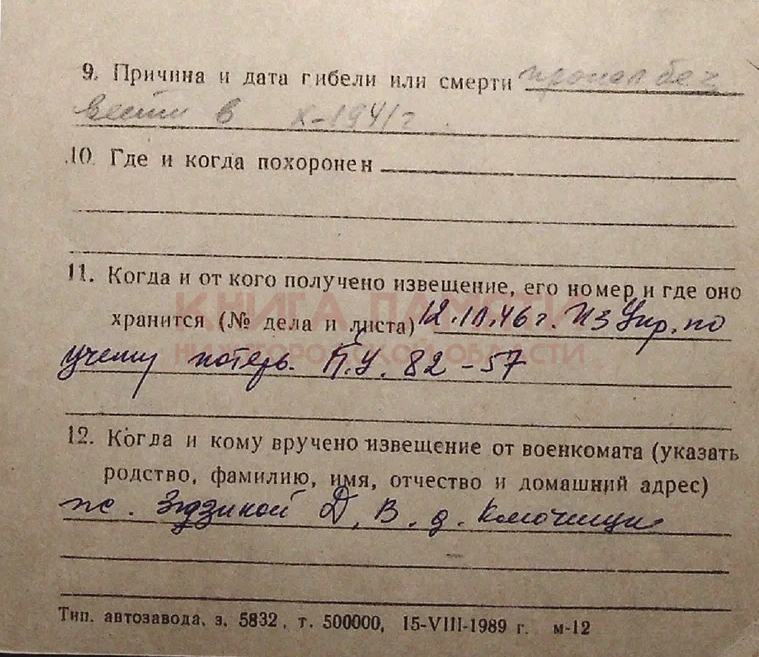 9. Причина и дата гибели или смерти пропал без
вести в X-1941 г.
10. Где и когда похоронен
11. Когда и от кого получено извещение, его номер и где оно
КНИГА ПАМЯТИ
хранится (№ дела и листа) 12.10.46 г. Из Упр. по
НИЖЕГОРОДСКОЙ ОБЛАСТИ
учету потерь. П.У. 82-57
12. Когда и кому вручено извещение от военкомата (указать
родство, фамилию, имя, отчество и домашний адрес)
Д. В. д.
Тип. автозавода, з. 5832, т. 500000, 15-VIII-1989 г. м-12